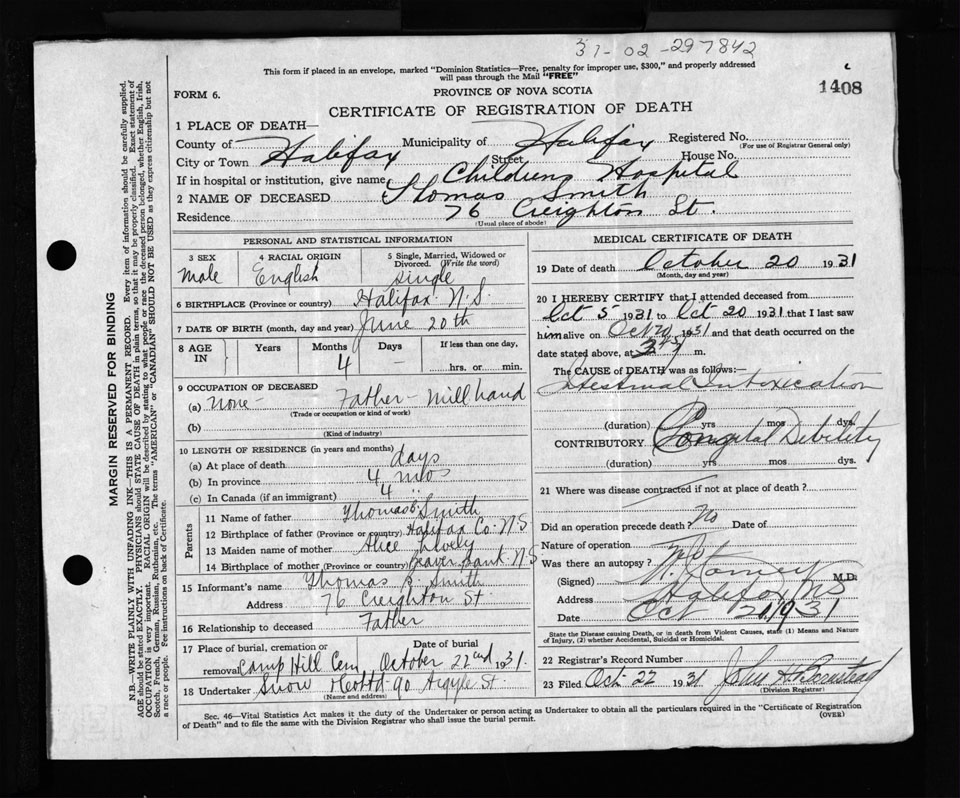 31-02-297842
This form if placed in an envelope, marked "Dominion Statistics—Free, penalty for improper use, $300," and properly addressed
will pass through the Mail "FREE"
1408
FORM 6.
PROVINCE OF NOVA SCOTIA
CERTIFICATE OF REGISTRATION OF DEATH
1 PLACE OF DEATH—
County of Halifax Municipality of Halifax Registered No.
(For use of Registrar General only)
City or Town Street House No.
If in hospital or institution, give name Childrens Hospital
2 NAME OF DECEASED Thomas Smith
Residence 76 Creighton St.
(Usual place of abode)
PERSONAL AND STATISTICAL INFORMATION
3 SEX 4 RACIAL ORIGIN 5 Single, Married, Widowed or
Divorced. (Write the word)
male English single
6 BIRTHPLACE (Province or country) Halifax N.S.
7 DATE OF BIRTH (month, day and year) June 20th
8 AGE IN Years Months Days If less than one day,
4 – hrs. or min.
9 OCCUPATION OF DECEASED
(a) None – Father – Millhand
(Trade or occupation or kind of work)
(b)
(Kind of industry)
10 LENGTH OF RESIDENCE (in years and months)
(a) At place of death days
(b) In province 4 mos
(c) In Canada (if an immigrant) 4 "
Parents
11 Name of father Thomas B. Smith
12 Birthplace of father (Province or country) Halifax Co. N.S
13 Maiden name of mother Alice Lively
14 Birthplace of mother (Province or country) Beaver Bank N S
15 Informant's name Thomas B. Smith
Address 76 Creighton St
16 Relationship to deceased Father
17 Place of burial, cremation or Date of burial
removal Camp Hill Cem, October 22nd 1931.
18 Undertaker Snow & Co Ltd 90 Argyle St
(Name and address)
MEDICAL CERTIFICATE OF DEATH
19 Date of death October 20 1931
(Month, day and year)
20 I HEREBY CERTIFY that I attended deceased from
Oct 5 1931 to Oct 20 1931 that I last saw
him alive on Oct 20 1931 and that death occurred on the
date stated above, at m.
The CAUSE of DEATH was as follows:—
Intestinal Intoxication
(duration) yrs mos dys.
CONTRIBUTORY Congital Debility
(duration) yrs mos dys.
21 Where was disease contracted if not at place of death?
Did an operation precede death? No Date of
Nature of operation
Was there an autopsy? No
(Signed) M.D.
Address Halifax NS
Date Oct 21, 1931
State the Disease causing Death, or in death from Violent Causes, state (1) Means and Nature
of Injury, (2) whether Accidental, Suicidal or Homicidal.
22 Registrar's Record Number
23 Filed Oct- 22 1931 John H.
(Division Registrar)
Sec. 46—Vital Statistics Act makes it the duty of the Undertaker or person acting as Undertaker to obtain all the particulars required in the "Certificate of Registration
of Death" and to file the same with the Division Registrar who shall issue the burial permit.
(OVER)
MARGIN RESERVED FOR BINDING
N.B. WRITE PLAINLY WITH UNFADING INK—THIS IS A PERMANENT RECORD. Every item of information should be carefully supplied.
AGE should be stated EXACTLY. PHYSICIANS should STATE CAUSE OF DEATH in plain terms, so that it may be properly classified. Exact statement of
OCCUPATION is very important. RACIAL ORIGIN will be described by stating to what people or race the deceased person belonged, whether English, Irish,
Scotch, French, German, Russian, Ruthenian, etc. The terms "AMERICAN" or "CANADIAN" SHOULD NOT BE USED as they express citizenship but not
a race or people. Fee instructions on back of Certificate.